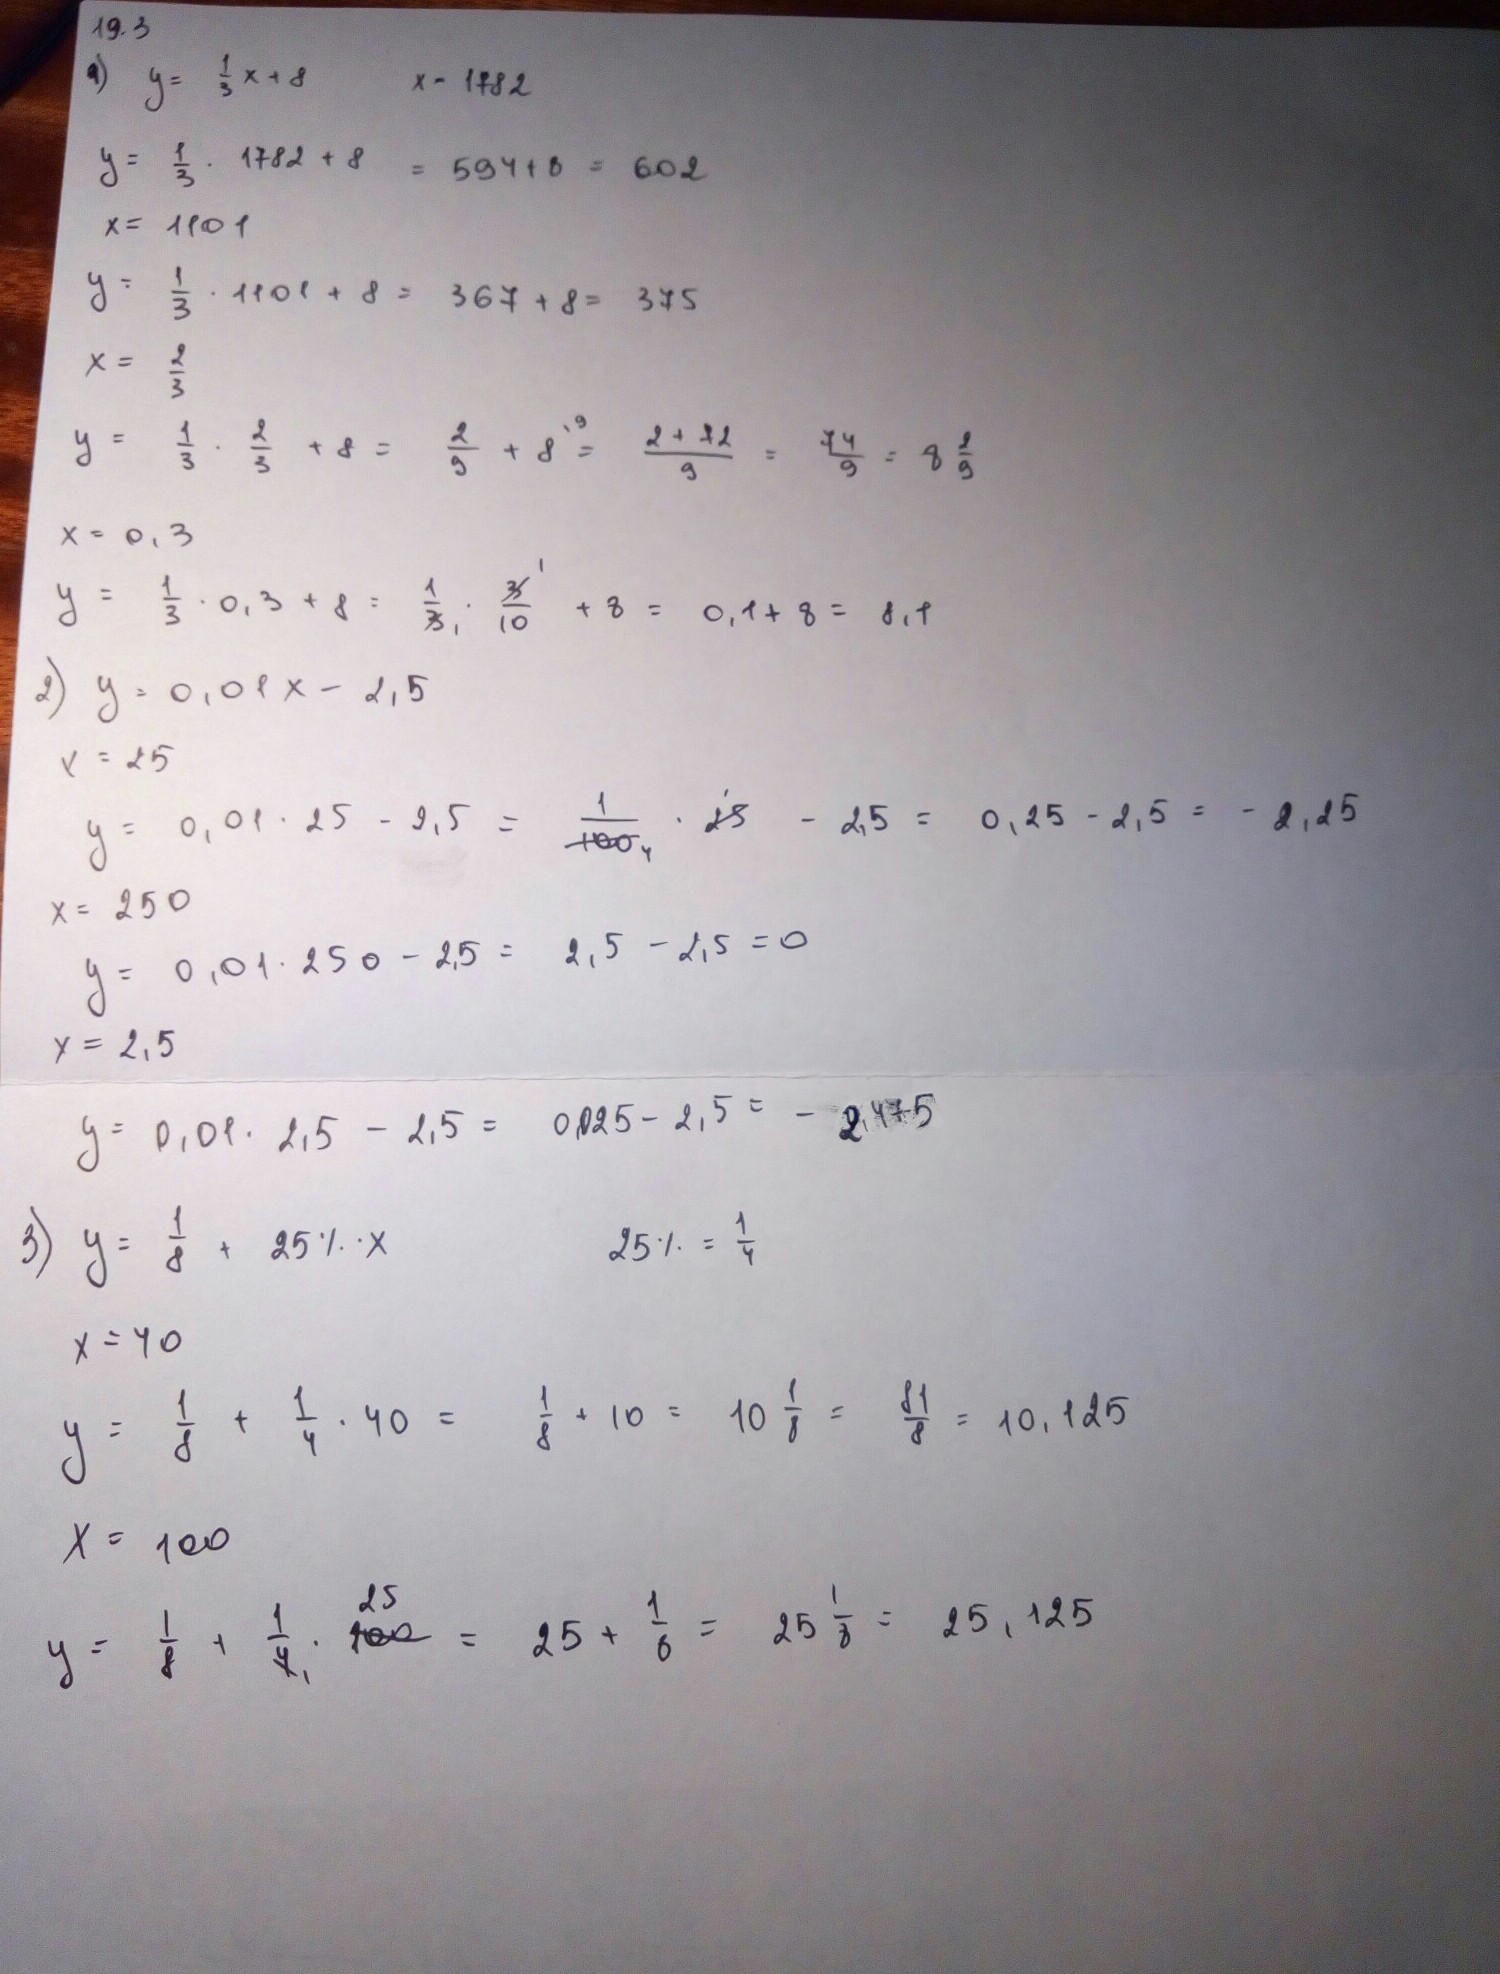 19.3
1) y = 1/3 x + 8 x - 1782
y = 1/3 · 1782 + 8 = 594 + 8 = 602
x = 1101
y = 1/3 · 1101 + 8 = 367 + 8 = 375
x = 2/3
y = 1/3 · 2/3 + 8 = 2/9 + 8 ·9 = (2 + 72)/9 = 74/9 = 8 2/9
x = 0,3
y = 1/3 · 0,3 + 8 = 1/3 1 · 3/10 1 + 8 = 0,1 + 8 = 8,1
2) y = 0,01x - 2,5
x = 25
y = 0,01 · 25 - 2,5 = 1/100 4 · 25 1 - 2,5 = 0,25 - 2,5 = - 2,25
x = 250
y = 0,01 · 250 - 2,5 = 2,5 - 2,5 = 0
x = 2,5
y = 0,01 · 2,5 - 2,5 = 0,025 - 2,5 = - 2,475
3) y = 1/8 + 25% · x 25% = 1/4
x = 40
y = 1/8 + 1/4 · 40 = 1/8 + 10 = 10 1/8 = 81/8 = 10,125
x = 100
y = 1/8 + 1/4 1 · 100 25 = 25 + 1/8 = 25 1/8 = 25,125